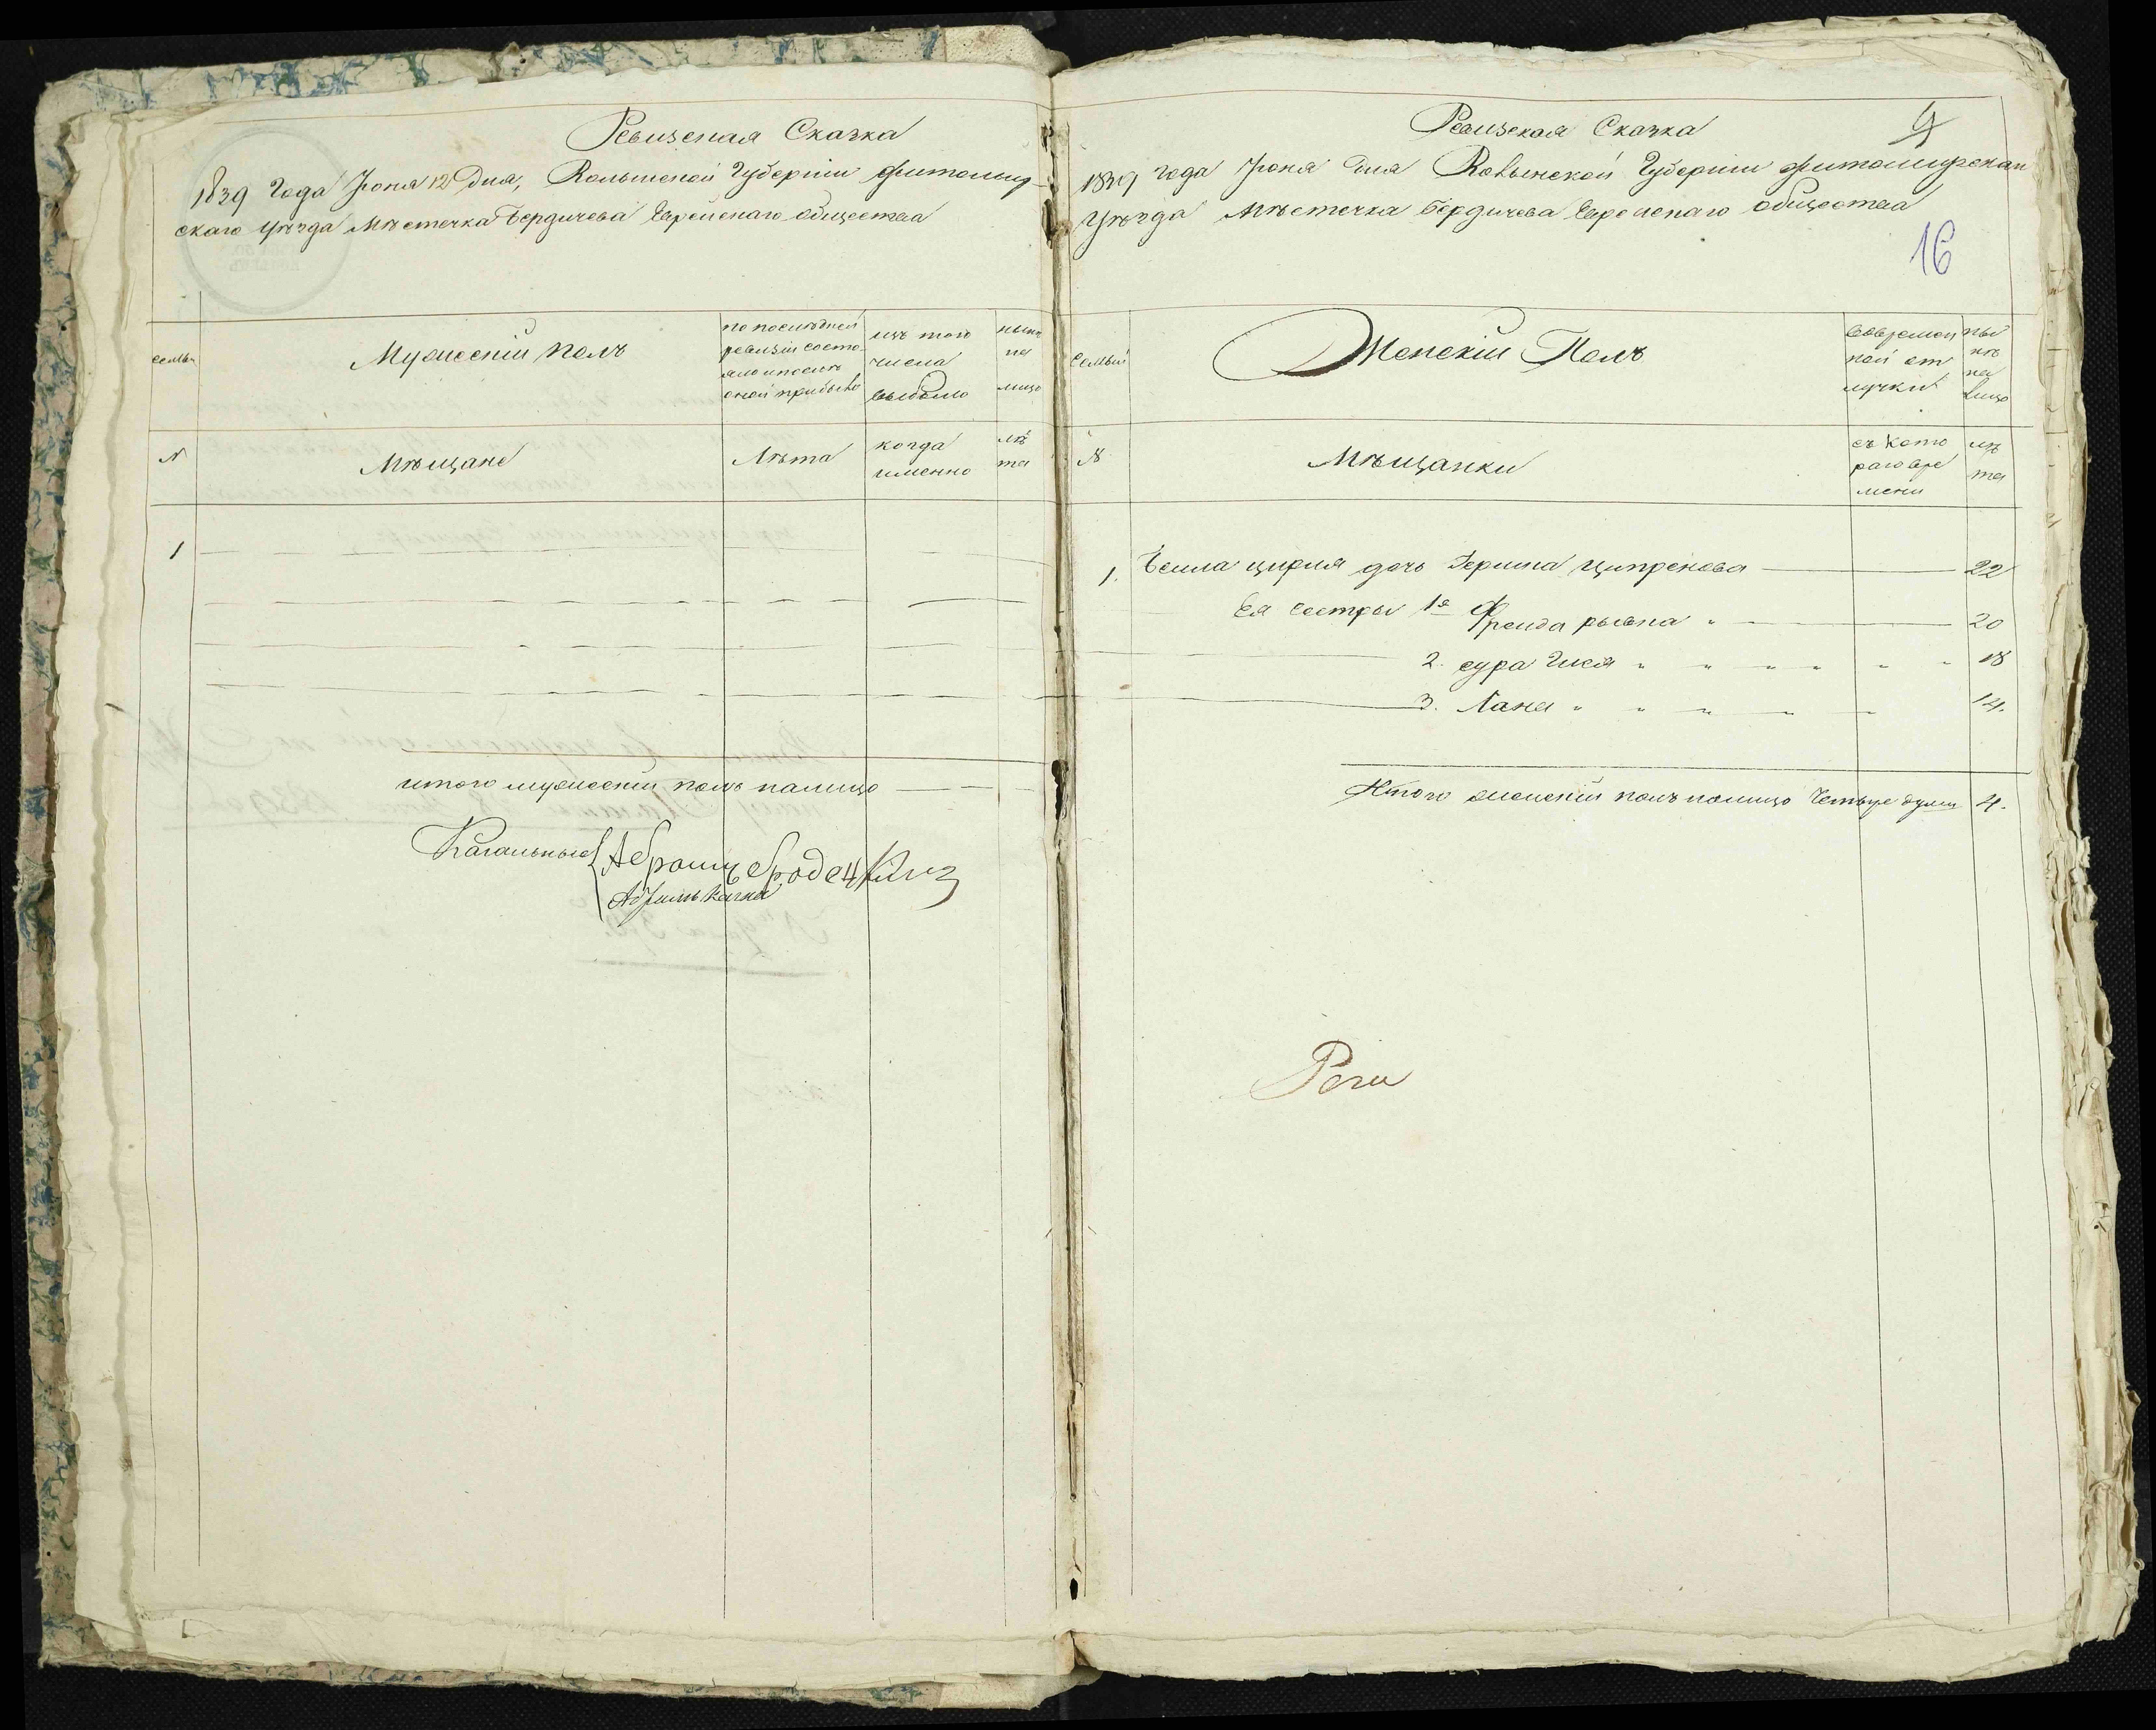 Ревизская Сказка
1839 года Іюня 12 Дня, Волынской Губерніи Житомир-
скаго уѣзда Мѣстечка Бердичева Еврейскаго общества
семьи
Мужескій полъ
по последней
ревизіи состо-
яло и после
оной прибыло
изъ того
числа
выбыло
ныне
на
лицо
№
Мѣщане
Лѣта
когда
именно
лѣ
та
1
итого мужескій полъ налицо
Кагальные
Ревизская Сказка
9
1839 года Іюня Дня Волынской Губерніи Житомирскаго
уѣзда Мѣстечка Бердичева Еврейскаго общества
16
семьи
Женскій Полъ
Во времен
ной от
лучки
ны
нѣ
на
лицо
№
Мѣщанки
съ кото
раго вре
мени
лѣ
та
1. Бейла Цирля дочь Гершка Ципренова 22
Ея сестры 1я Фрейда рывка 20
2. сура Гися 18
3. Хана 14.
Итого женскій полъ налицо Четыре души 4.